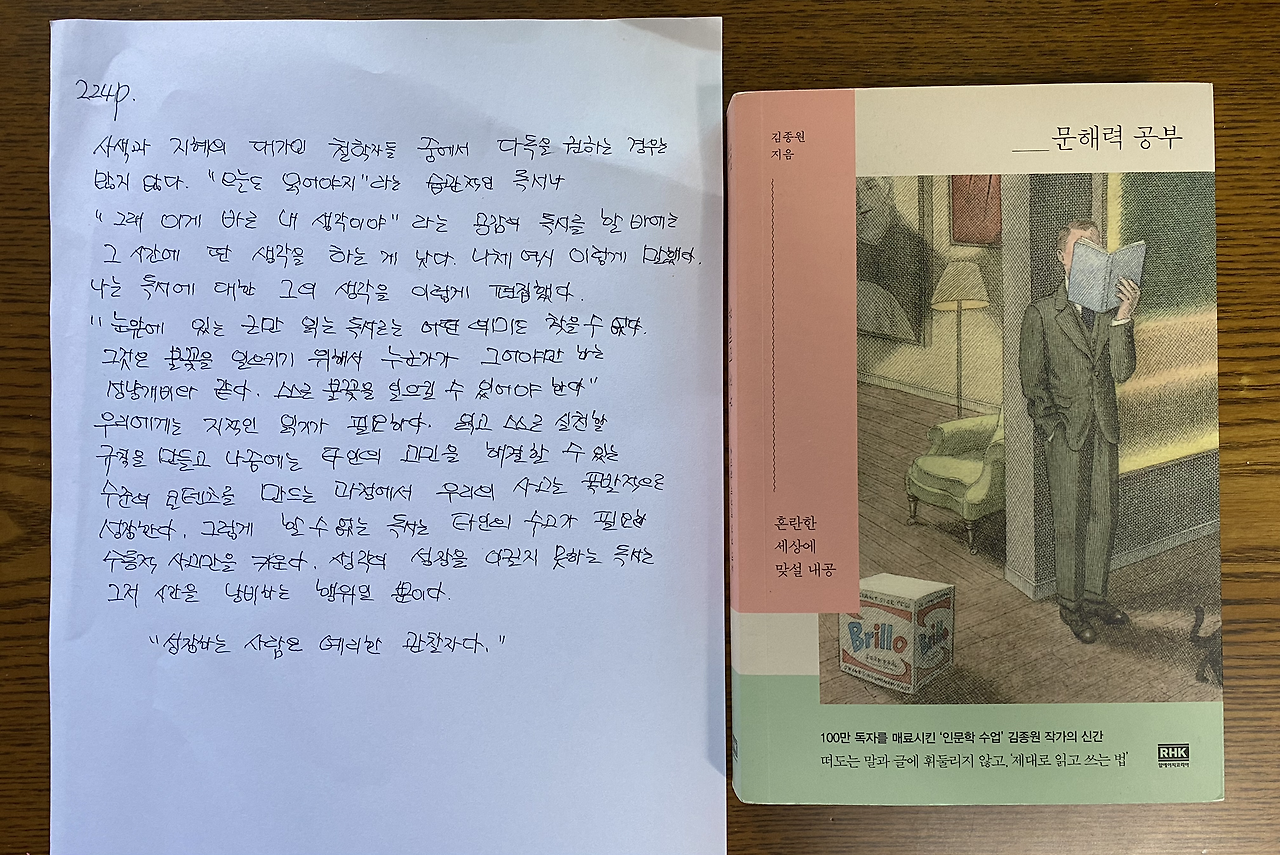 224p.
사색과 지혜의 대가인 철학자들 중에서 다독을 권하는 경우는
많지 않다. "오늘도 읽어야지"라는 습관적인 독서나
"그래 이게 바로 내 생각이야" 라는 공감의 독서를 할 바에는
그 시간에 딴 생각을 하는 게 낫다. 니체 역시 이렇게 말했다.
나는 독서에 대한 그의 생각을 이렇게 편집했다.
"눈앞에 있는 글만 읽는 독서로는 어떤 의미도 찾을 수 없다.
그것은 불꽃을 일으키기 위해서 누군가가 그어야만 하는
성냥개비와 같다. 스스로 불꽃을 일으킬 수 있어야 한다"
우리에게는 지적인 읽기가 필요하다. 읽고 스스로 실천할
규칙을 만들고 나중에는 타인의 고민을 해결할 수 있는
수준의 콘텐츠를 만드는 과정에서 우리의 사고는 폭발적으로
성장한다. 그렇게 할 수 없는 독서는 타인의 수고가 필요한
수동적 사고만을 키운다. 생각의 성장을 이루지 못하는 독서는
그저 시간을 낭비하는 행위일 뿐이다.
"성장하는 사람은 예리한 관찰자다."
김종원
지음
문해력 공부
혼란한
세상에
맞설 내공
Brillo
Brillo
100만 독자를 매료시킨 '인문학 수업' 김종원 작가의 신간
떠도는 말과 글에 휘둘리지 않고, '제대로 읽고 쓰는 법'
RHK
알에이치코리아